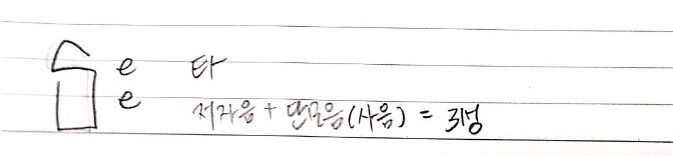 e 타
e 저자음 + 단모음(사음) = 3성